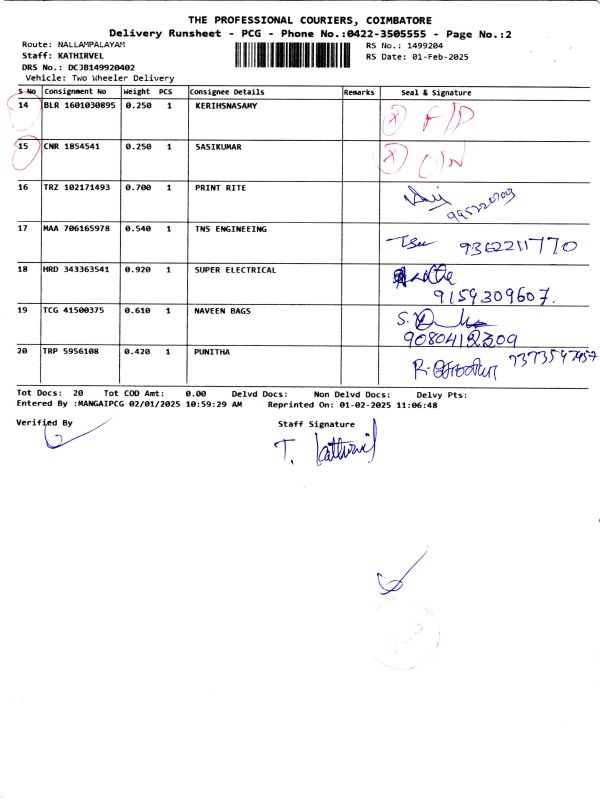 THE PROFESSIONAL COURIERS, COIMBATORE
Delivery Runsheet - PCG - Phone No.:0422-3505555 - Page No.:2
Route: NALLAMPALAYAM RS No.: 1499204
Staff: KATHIRVEL RS Date: 01-Feb-2025
DRS No.: DCJB149920402
Vehicle: Two Wheeler Delivery
S No Consignment No Weight PCS Consignee Details Remarks Seal & Signature
14 BLR 1601030895 0.250 1 KERIHSNASAMY F/D
15 CNR 1854541 0.250 1 SASIKUMAR
16 TRZ 102171493 0.700 1 PRINT RITE
17 MAA 706165978 0.540 1 TNS ENGINEEING 9362211770
18 HRD 343363541 0.920 1 SUPER ELECTRICAL
9159309607.
19 TCG 41500375 0.610 1 NAVEEN BAGS
20 TRP 5956108 0.420 1 PUNITHA
Tot Docs: 20 Tot COD Amt: 0.00 Delvd Docs: Non Delvd Docs: Delvy Pts:
Entered By :MANGAIPCG 02/01/2025 10:59:29 AM Reprinted On: 01-02-2025 11:06:48
Verified By Staff Signature